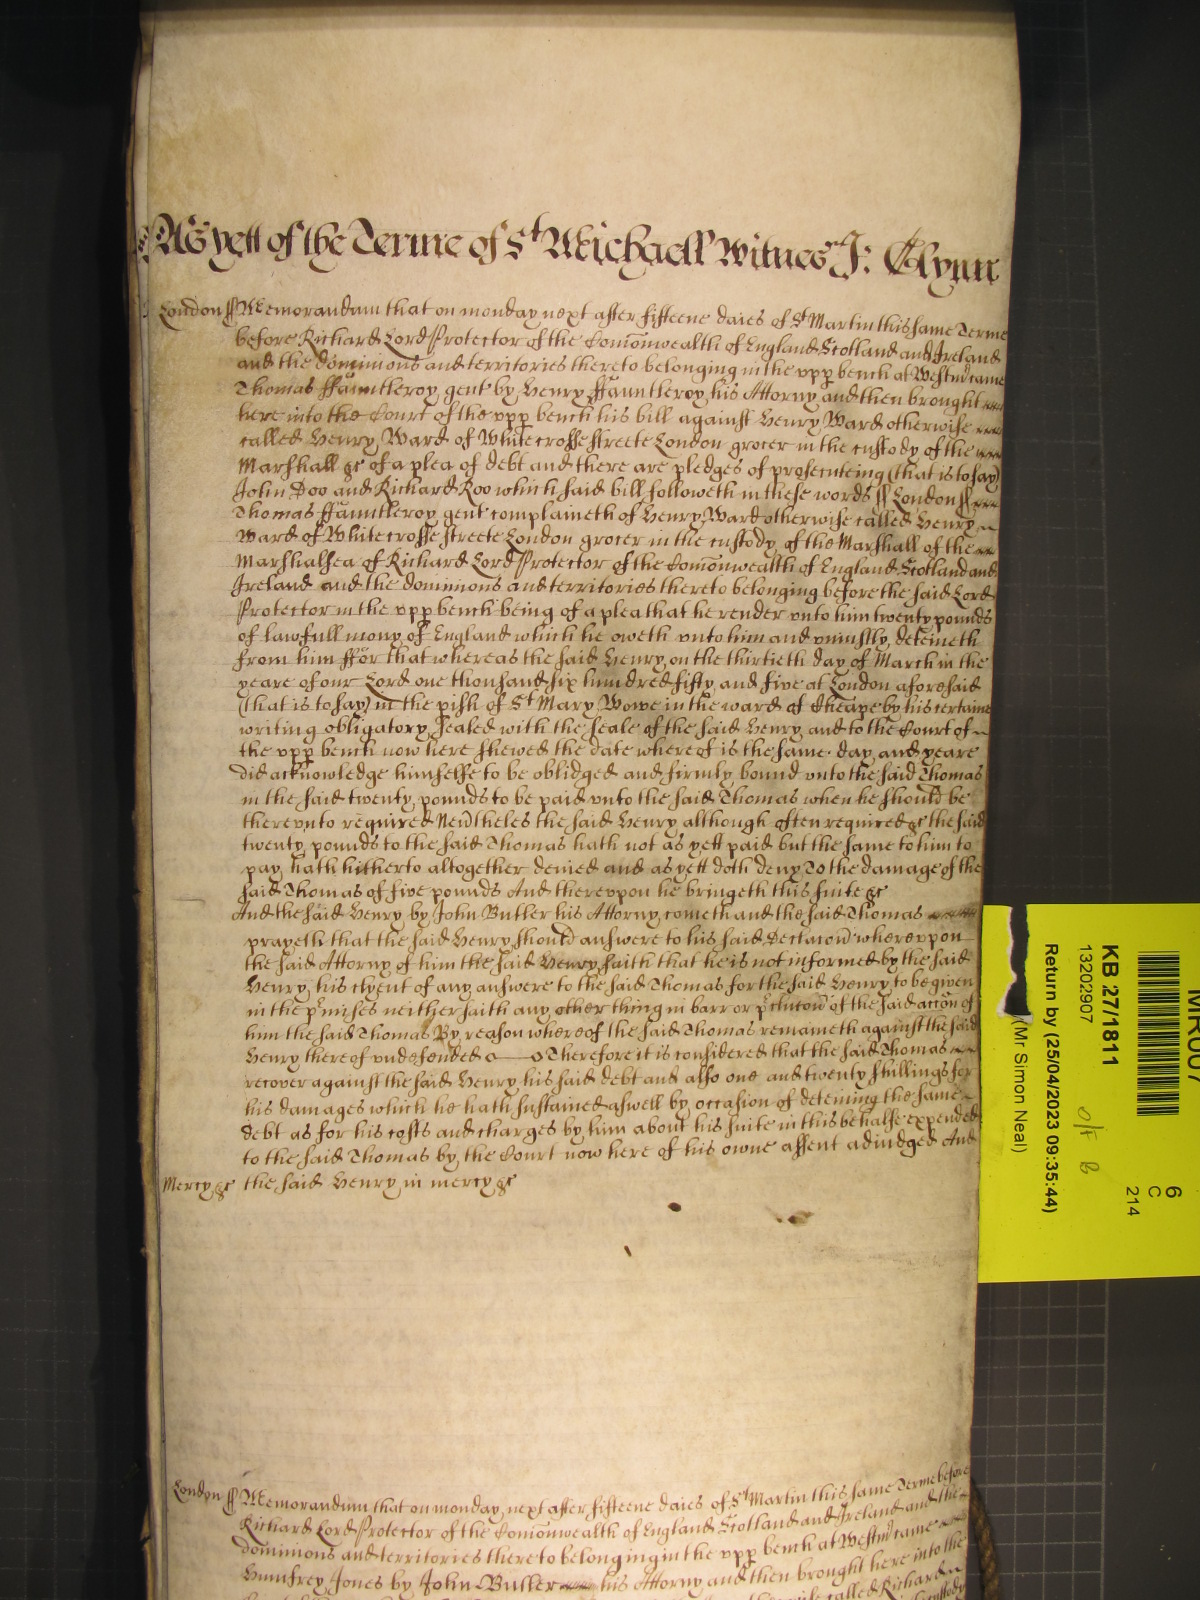 As yett of the Terme of St Michaell Witnes J: Glynn
London ss Memorandum that on monday next after fifteene daies of St Martin this same Terme
before Richard Lord Protector of the Com̄onwealth of England Scotland and Ireland
and the dominions and territories thereto belonging in the upp bench at Westmr came
Thomas ffauntleroy gent by Henry ffauntleroy his Attorny and then brought
here into the Court of the upp bench his bill against Henry Ward otherwise
called Henry Ward of Whitecrosse streete London grocer in the custody of the
Marshall &c of a plea of debt and there are pledges of prosecuteing (that is to say)
John Doo and Richard Roo which said bill followeth in these words ss London ss
Thomas ffauntleroy gent complaineth of Henry Ward otherwise called Henry
Ward of Whitecrosse streete London grocer in the custody of the Marshall of the
Marshalsea of Richard Lord Protector of the Com̄onwealth of England Scotland and
Ireland and the dominions and territories thereto belonging before the said Lord
Protector in the upp bench being of a plea that he render unto him twenty pounds
of lawfull mony of England which he oweth unto him and uniustly deteineth
from him ffor that whereas the said Henry on the thirtieth day of March in the
yeare of our Lord one thousand six hundred fifty and five at London aforesaid
(that is to say) in the pish of St Mary Bowe in the ward of Cheape by his certaine
writing obligatory sealed with the seale of the said Henry and to the Court of
the upp bench now here shewed the date whereof is the same day and yeare
did acknowledge himselfe to be obliged and firmly bound unto the said Thomas
in the said twenty pounds to be paid unto the said Thomas when he should be
thereunto required Nev̄theles the said Henry although often required &c the said
twenty pounds to the said Thomas hath not as yett paid but the same to him to
pay hath hitherto altogether denied and as yett doth deny To the damage of the
said Thomas of five pounds And thereupon he bringeth this suite &c
And the said Henry by John Butler his Attorny cometh and the said Thomas
prayeth that the said Henry should answere to his said Declarac̄on whereupon
the said Attorny of him the said Henry saith that he is not informed by the said
Henry his clyent of any answere to the said Thomas for the said Henry to be given
in the pmises neither saith any other thing in barr or pclusion of the said acc̄on of
him the said Thomas By reason whereof the said Thomas remaineth against the said
Henry thereof undefended Therefore it is considered that the said Thomas
recover against the said Henry his said debt and also one and twenty shillings for
his damages which he hath sustained aswell by occasion of deteining the same
debt as for his costs and charges by him about his suite in this behalfe expended
to the said Thomas by the Court now here of his owne assent adiudged And
Mercy &c the said Henry in mercy &c
London ss Memorandum that on monday next after fifteene daies of St Martin this same Terme before
Richard Lord Protector of the Com̄onwealth of England Scotland and Ireland and the
dominions and territories thereto belonging in the upp bench at Westmr came
Humfrey Jones by John Butler his Attorny and then brought here into the
called Richard
KB 27/1811
13202907
Return by (25/04/2023 09:35:44)
(Mr Simon Neal)
6
C
214